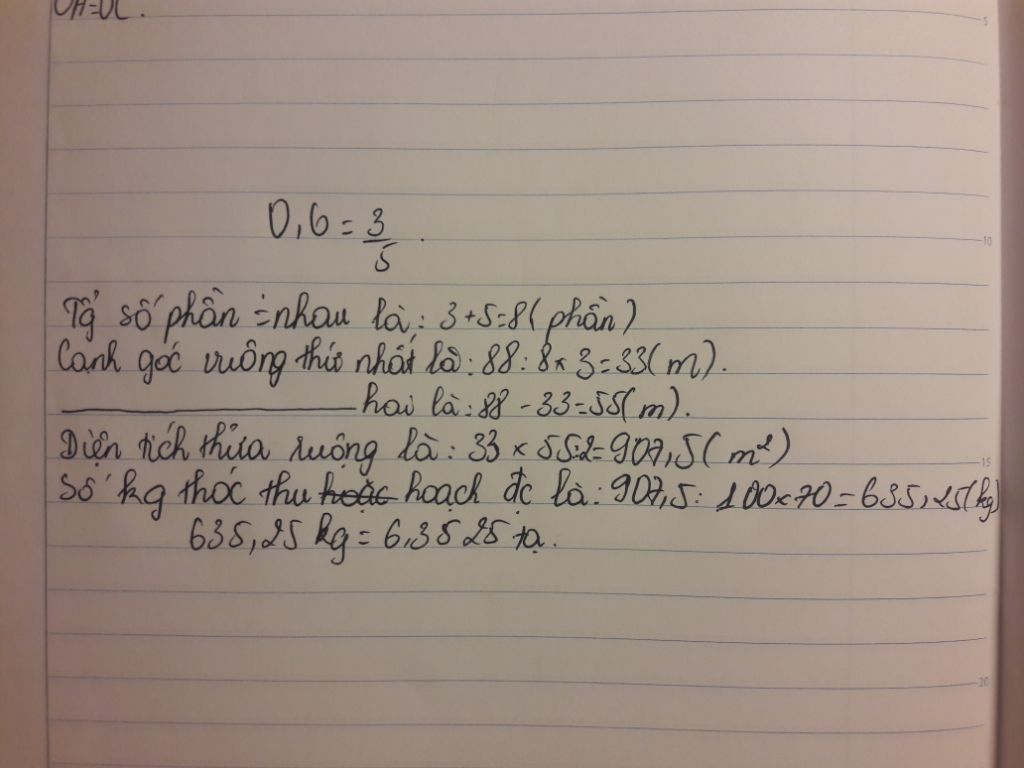 OA=OC.
5
0,6 = 3/5.
10
Tổ số phần = nhau là: 3+5=8 (phần)
Cạnh góc vuông thứ nhất là: 88:8×3=33(m).
_____ hai là: 88-33=55(m).
Diện tích thửa ruộng là: 33×55:2=907,5(m²)
15
Số kg thóc thu hoặc hoạch đc là: 907,5:100×70=635,25(kg)
635,25 kg = 6,3525 tạ.
20